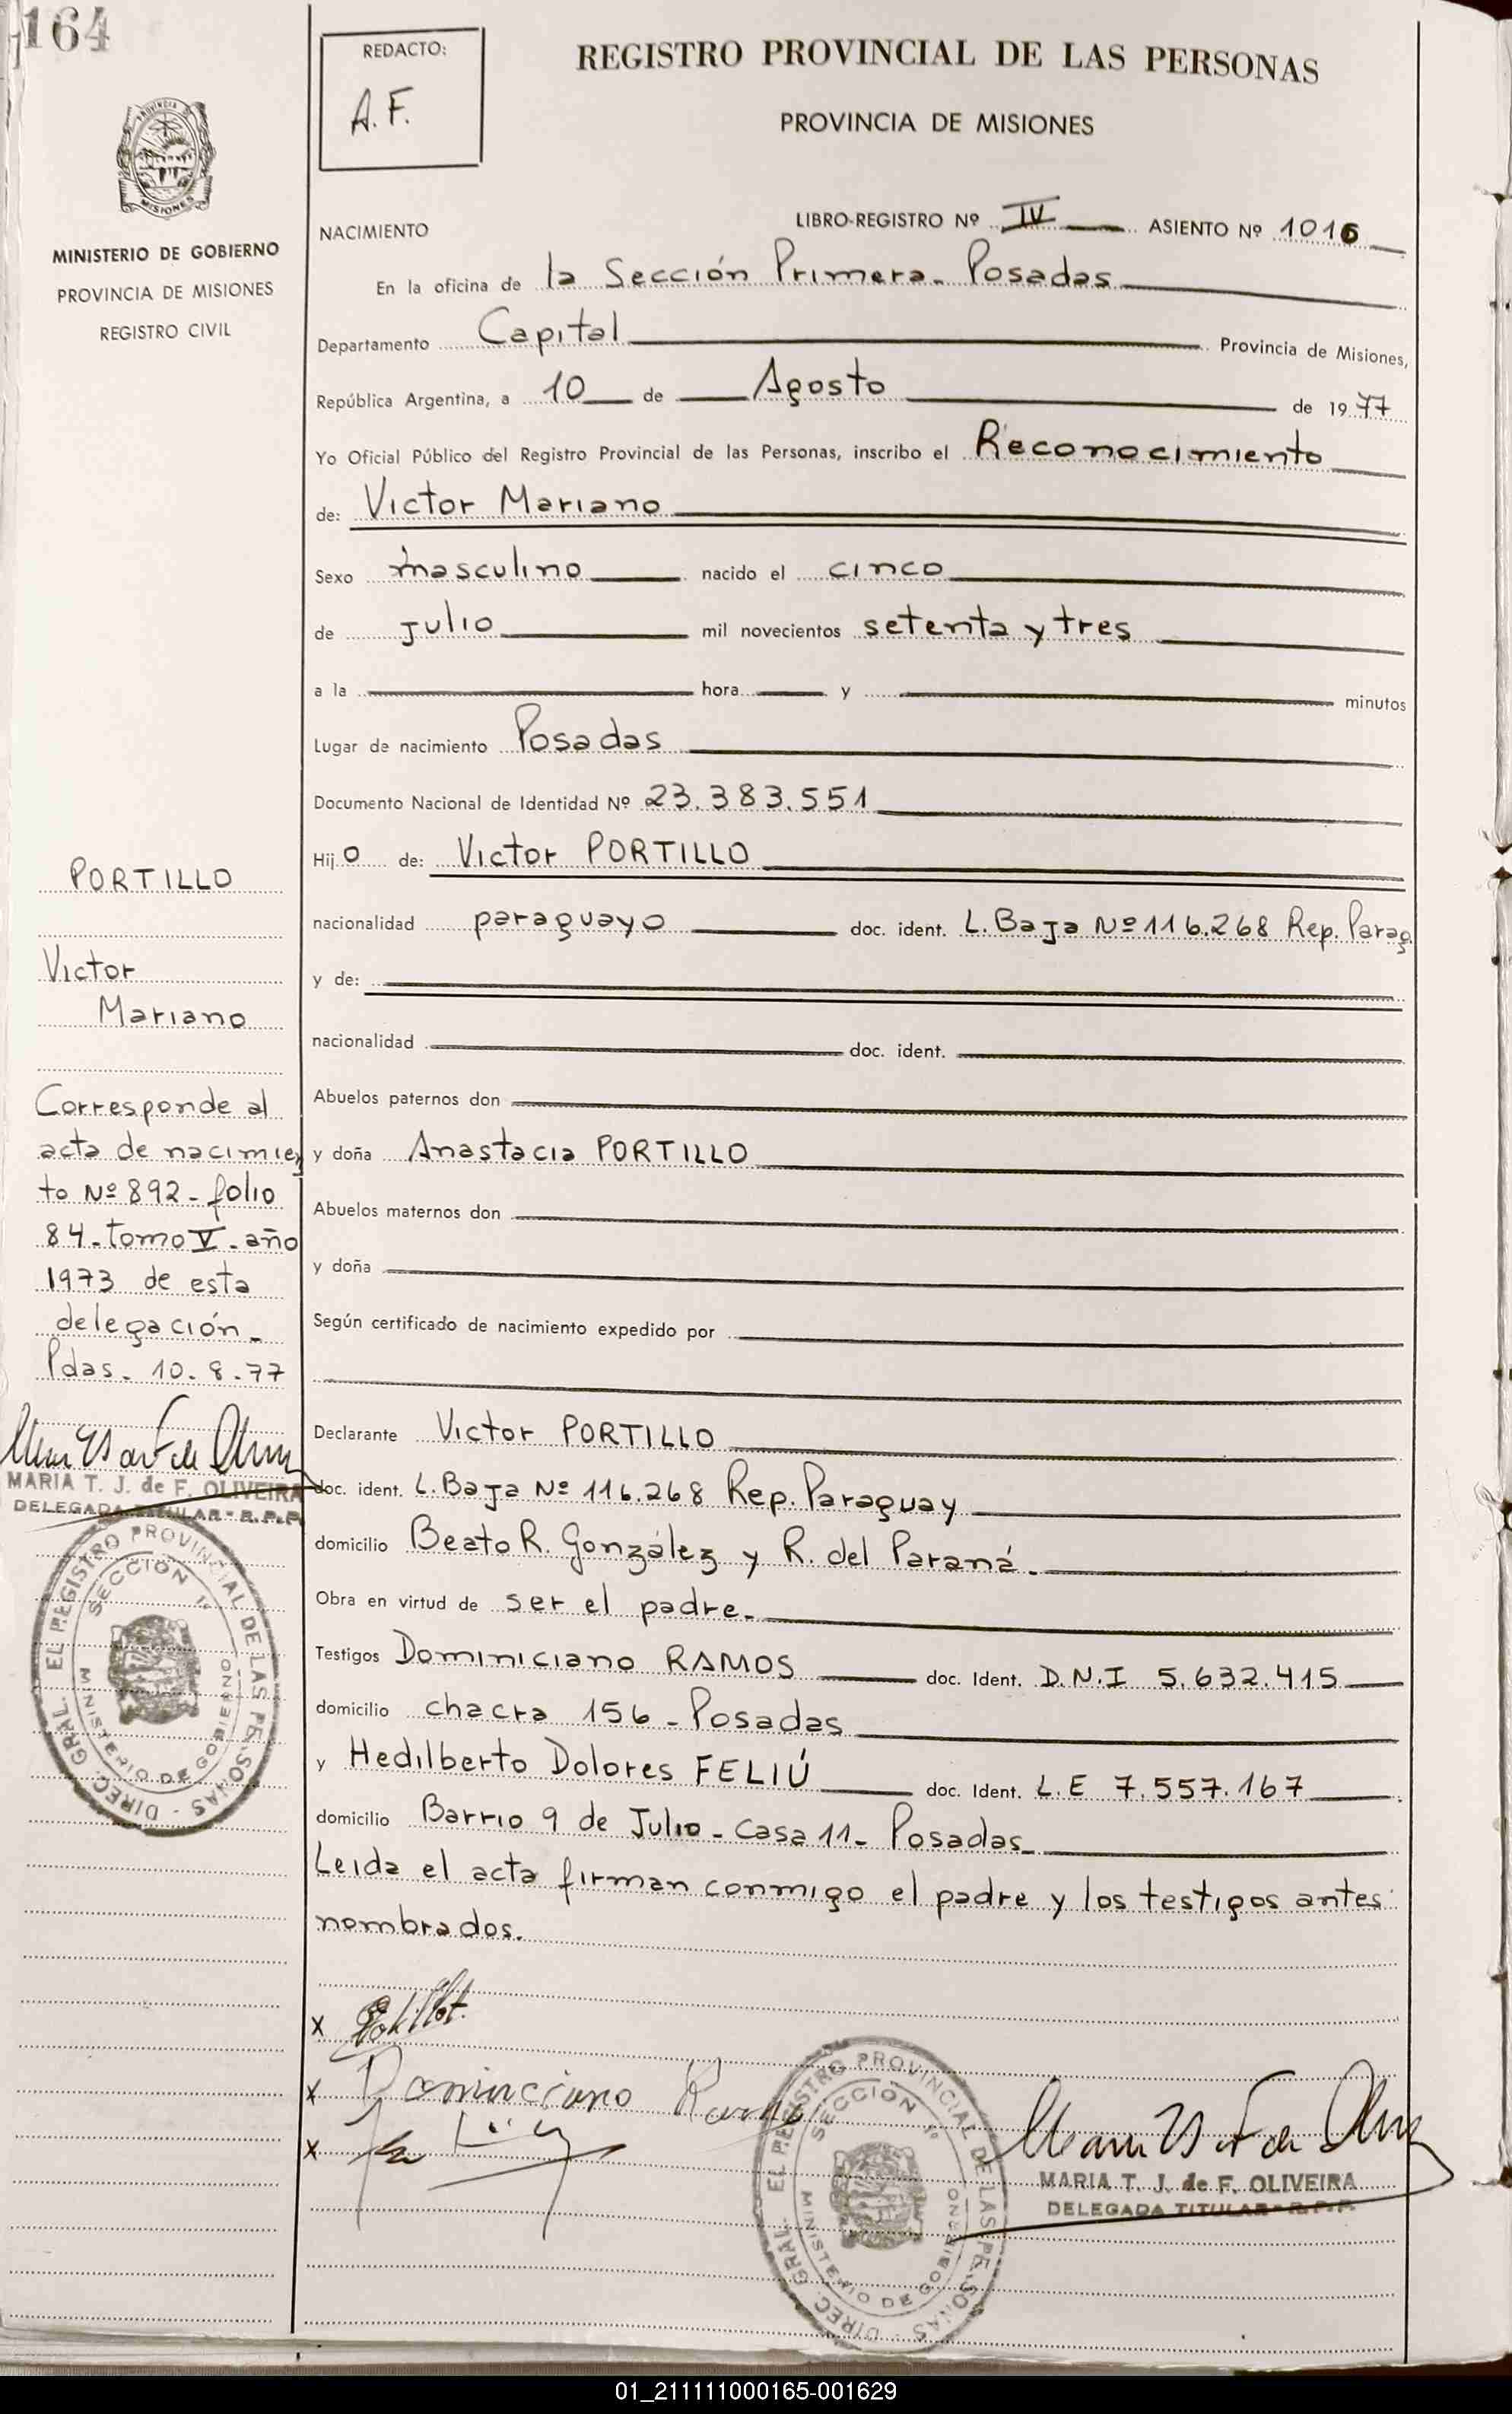 164
REDACTO:
A.F.
REGISTRO PROVINCIAL DE LAS PERSONAS
PROVINCIA DE MISIONES
MISIONES
MINISTERIO DE GOBIERNO
PROVINCIA DE MISIONES
REGISTRO CIVIL
NACIMIENTO LIBRO-REGISTRO Nº IV ASIENTO Nº 1016
En la oficina de la Sección Primera - Posadas
Departamento Capital Provincia de Misiones,
República Argentina, a 10 de Agosto de 1977
Yo Oficial Público del Registro Provincial de las Personas, inscribo el Reconocimiento
de: Victor Mariano
Sexo masculino nacido el cinco
de Julio mil novecientos setenta y tres
a la hora y minutos
Lugar de nacimiento Posadas
Documento Nacional de Identidad Nº 23.383.551
Hijo de: Victor PORTILLO
nacionalidad paraguayo doc. ident. L. Baja Nº 116.268 Rep. Parag
y de:
nacionalidad doc. ident.
Abuelos paternos don
y doña Anastacia PORTILLO
Abuelos maternos don
y doña
Según certificado de nacimiento expedido por
Declarante Victor PORTILLO
doc. ident. L. Baja Nº 116.268 Rep. Paraguay
domicilio Beato R. González y R. del Paraná.
Obra en virtud de ser el padre.
Testigos Dominiciano RAMOS doc. Ident. D.N.I 5.632.415
domicilio chacra 156 - Posadas
y Hedilberto Dolores FELIÚ doc. Ident. L.E 7.557.167
domicilio Barrio 9 de Julio - casa 11 - Posadas
Leida el acta firman conmigo el padre y los testigos antes
nombrados.
PORTILLO
Victor
Mariano
Corresponde al
acta de nacimien
to Nº 892 - folio
84 - tomo V - año
1973 de esta
delegación -
Pdas. 10.8.77
MARIA T. J. de F. OLIVEIRA
DELEGADA TITULAR - R.P.P.
DIREC. GRAL. EL REGISTRO PROVINCIAL DE LAS PERSONAS
SECCION 1ª
MINISTERIO DE GOBIERNO
x
x Dominiciano Ramos
x
DIREC. GRAL. EL REGISTRO PROVINCIAL DE LAS PERSONAS
SECCION 1ª
MINISTERIO DE GOBIERNO
MARIA T. J. de F. OLIVEIRA
DELEGADA TITULAR - R.P.P.
01_211111000165-001629